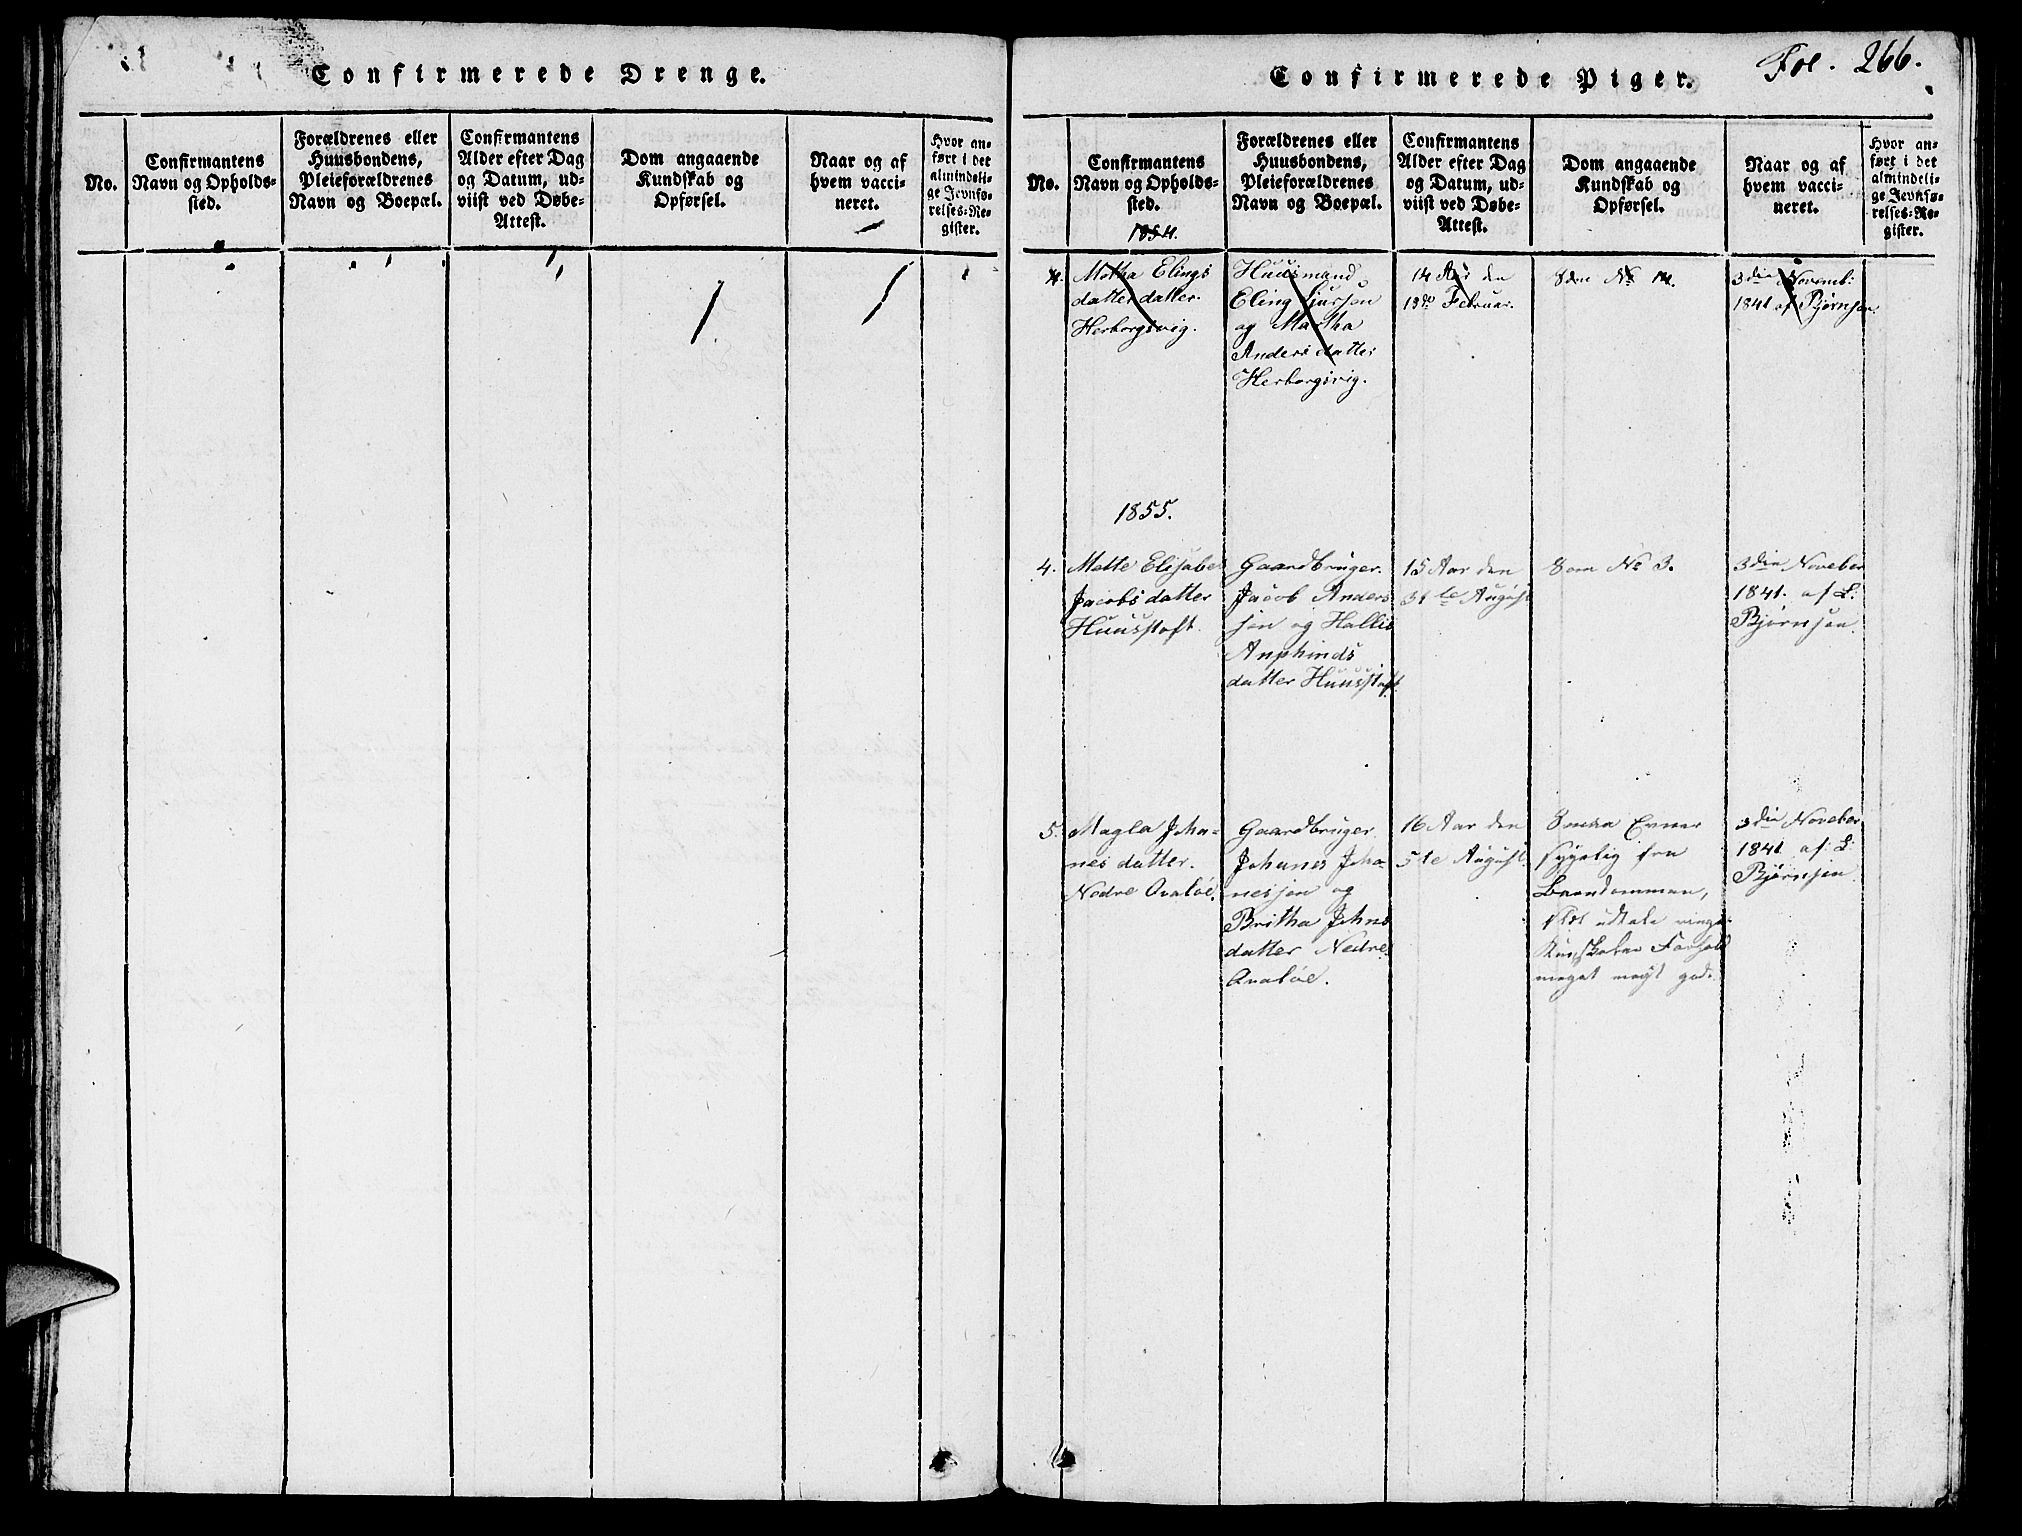 Confirmerede Drenge.
No.
Confirmantens
Navn og Opholds-
sted.
Forældrenes eller
Huusbondens,
Pleieforældrenes
Navn og Boepæl.
Confirmantens
Alder efter Dag
og Datum, ud-
viist ved Døbe-
Attest.
Dom angaaende
Kundskab og
Opførsel.
Naar og af
hvem vacci-
neret.
Hvor an-
ført i det
almindeli-
ge Jevnfø-
relses-Re-
gister.
Confirmerede Piger.
Fol. 266.
No.
Confirmantens
Navn og Opholds-
sted.
Forældrenes eller
Huusbondens,
Pleieforældrenes
Navn og Boepæl.
Confirmantens
Alder efter Dag
og Datum, ud-
viist ved Døbe-
Attest.
Dom angaaende
Kundskab og
Opførsel.
Naar og af
hvem vacci-
neret.
Hvor an-
ført i det
almindeli-
ge Jevnfø-
relses-Re-
gister.
1854.
4.
Elings
datter datter.
Herborgsvig.
Huusmand
Eling Sjursen
og Martha
Anders datter
Herborgsvig.
14 Aar den
Februar.
No
3die Novemb:
1841 af Bjørnsen.
1855.
4.
Mette Elisabe
Jacobs datter
Huusstoft.
Gaardbruger.
Jacob Anders
sen og
datter Huusstoft
15 Aar den
31te August
Som No 3.
3die Noveber
1841. af L:
Bjørnsen.
5.
Magla Joha=
nes datter.
Nedre
Gaardbruger
Johanes Joha
nessen og
Britha
datter Nedre
16 Aar den
5te August.
Smaa Evner
sygelig fra
Barndommen,
meget godt
3die Noveber
1841 af L:
Bjørnsen.